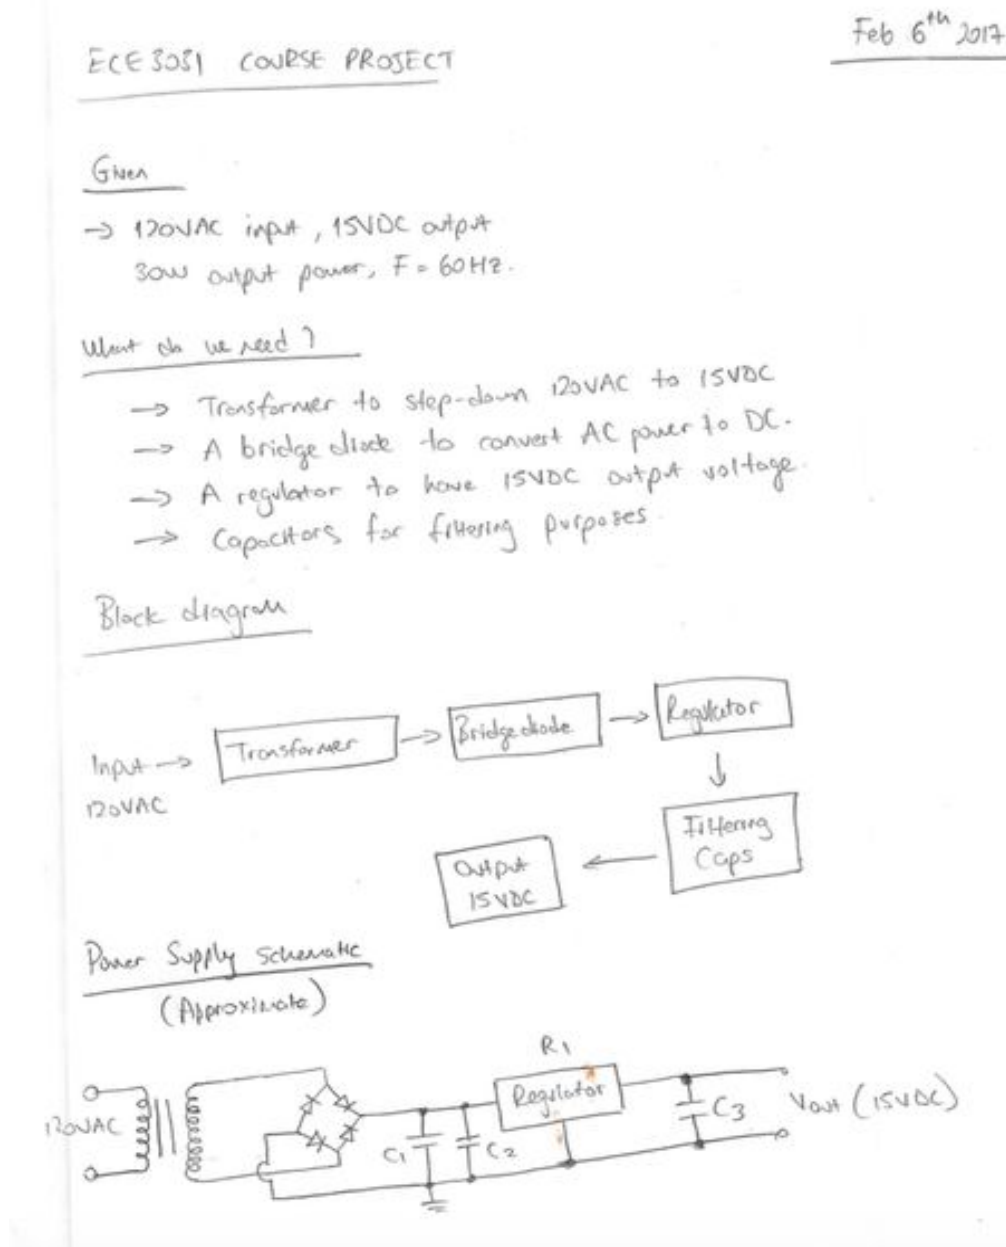 ECE 3031 COURSE PROJECT
Feb 6th 2017
Given
→ 120VAC input, 15VDC output
30W output power, F = 60Hz.
What do we need?
→ Transformer to step-down 120VAC to 15VDC
→ A bridge diode to convert AC power to DC.
→ A regulator to have 15VDC output voltage.
→ Capacitors for filtering purposes.
Block diagram
Input → Transformer → Bridge diode → Regulator
120VAC
Filtering
Caps
Output
15VDC
Power Supply schematic
(Approximate)
R1
120VAC
Regulator
C1
C2
C3
Vout (15VDC)